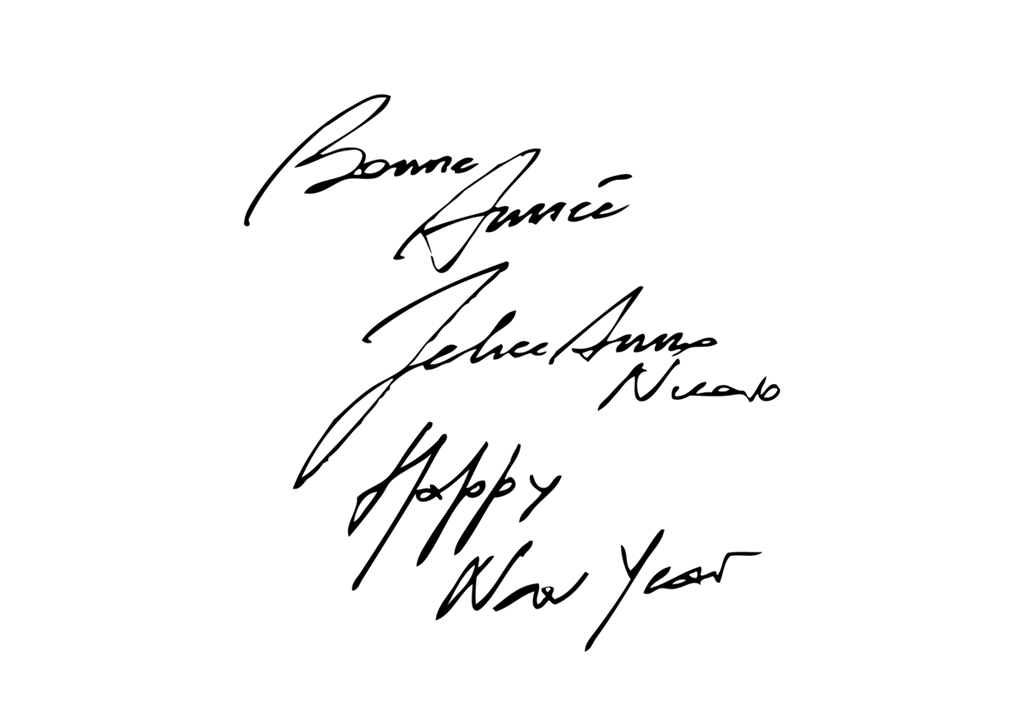 Bonne
Année
Felice Anno
Nuovo
Happy
New Year